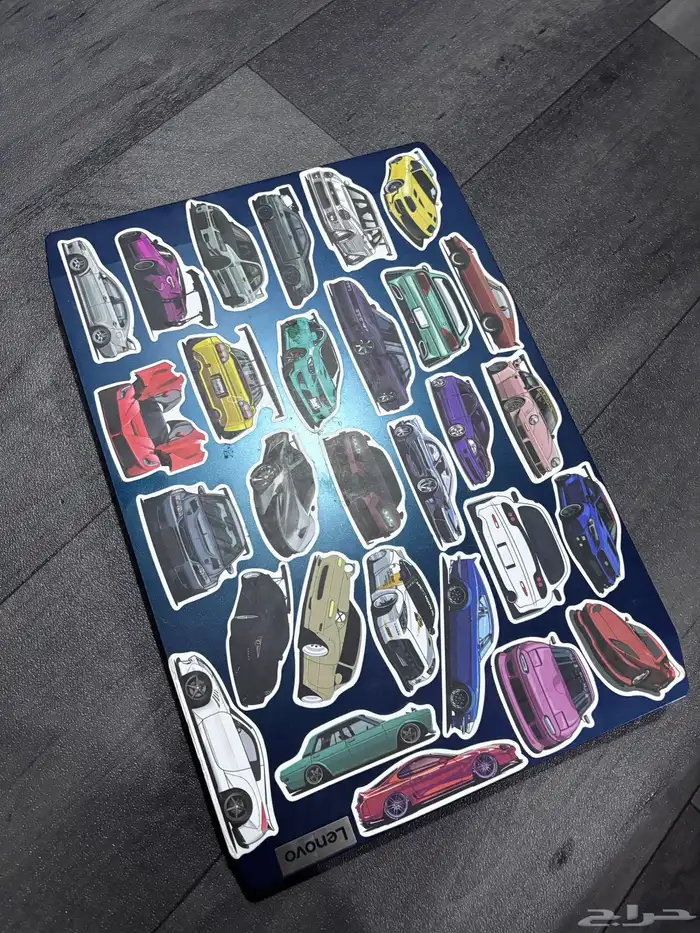 Lenovo
حراج